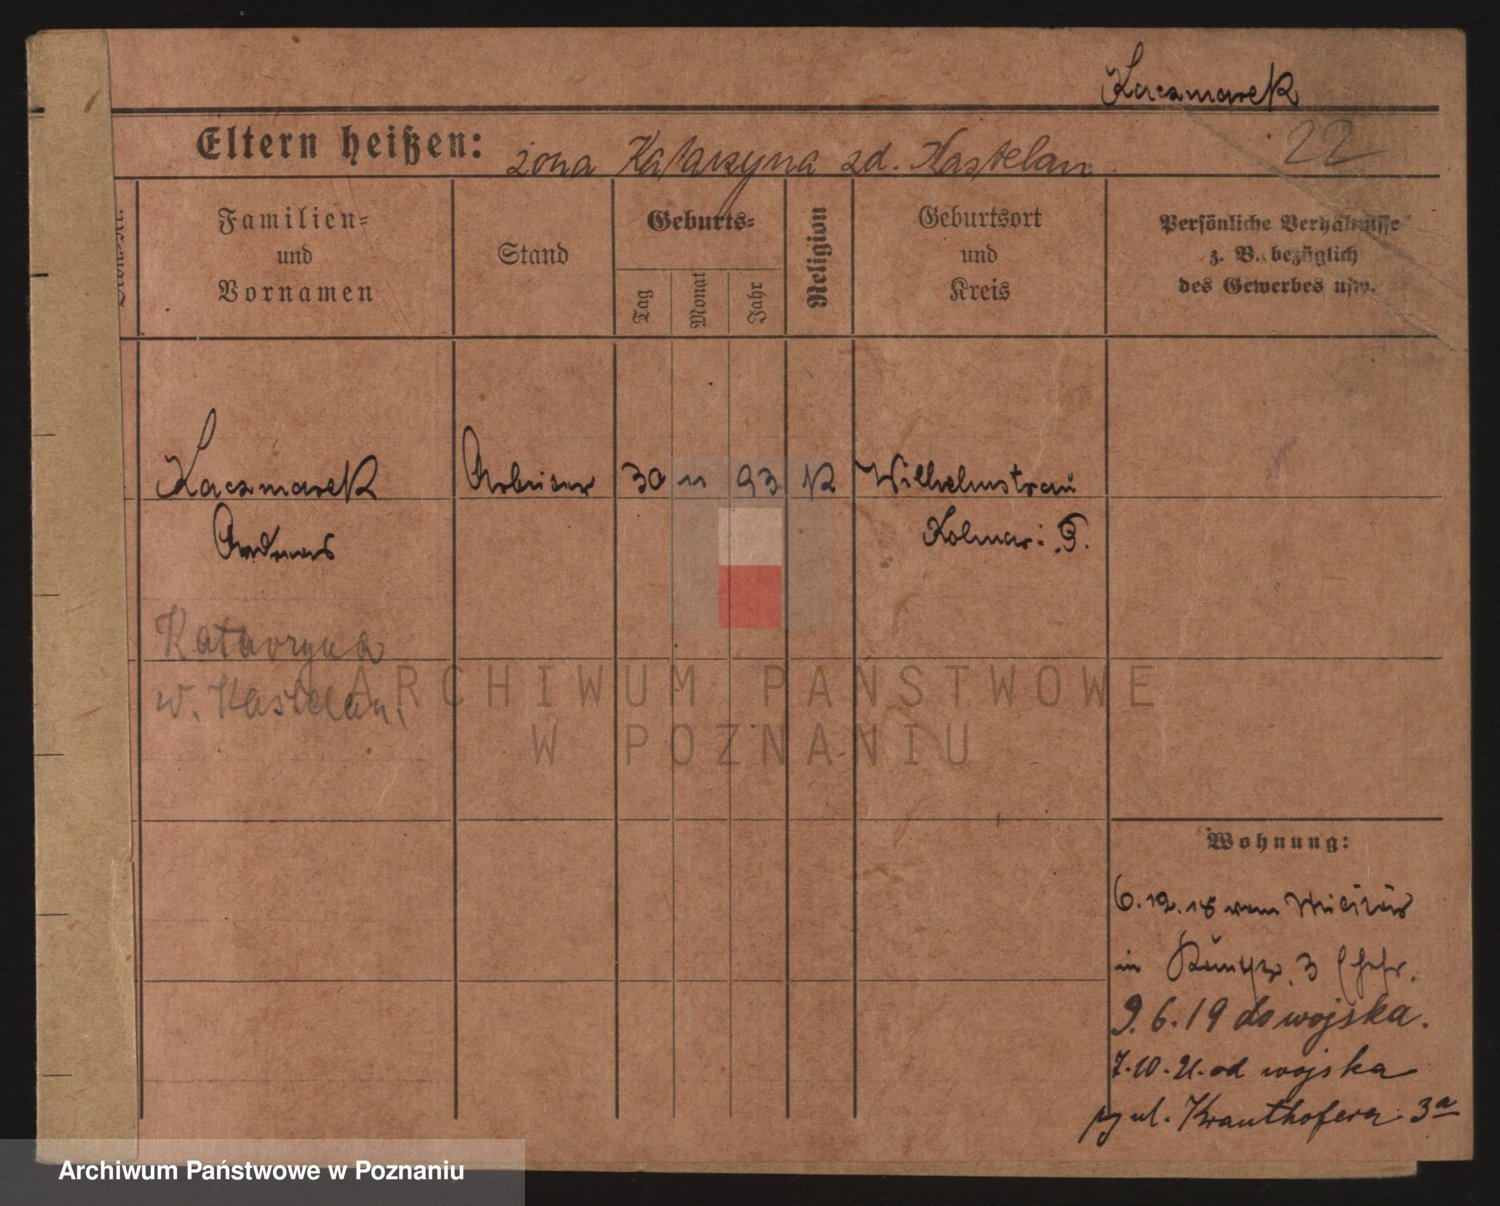 Kaczmarek
22
Eltern heißen: żona Katarzyna zd. Kastelan
Familien=
und
Vornamen
Stand
Geburts=
Tag
Monat
Jahr
Religion
Geburtsort
und
Kreis
Persönliche Verhältnisse
z. B. bezüglich
des Gewerbes usw.
Kaczmarek Arbeiter 30 11 93 K Wilhelmstreu
Andreas Kolmar i. P.
Katarzyna
w. Kastelan.
ARCHIWUM PAŃSTWOWE
W POZNANIU
Wohnung:
6.12.18 vom Militär
in 3
9.6.19 do wojska.
7.10.21. od wojska
ul. Krauthofera 3a
Archiwum Państwowe w Poznaniu